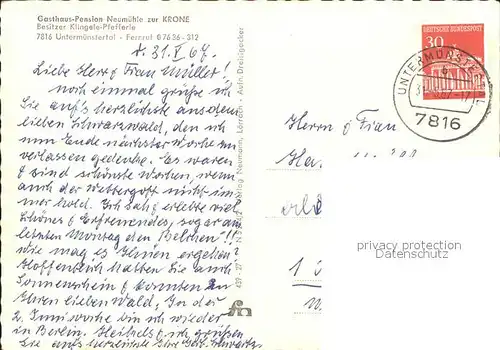 Gasthaus-Pension Neumühle zur KRONE
Besitzer Klingele-Pfefferle
7816 Untermünstertal - Fernruf 07636-312
d. 31.V 67.
Liebe Herr & Frau Müller!
noch einmal grüße ich
Sie auf's herzlichste aus dem
lieben Schwarzwald, den ich
nun Ende nächster Woche zu
verlassen gedenke. Es waren
& sind schönste Wochen, wenn
auch der Wettergott nicht im-
mer hold. Ich sah & erlebte viel
Schönes & Erfreuendes, sogar am
letzten Montag den Belchen!!
Wie mag es Ihnen ergehen?
Hoffentlich hatten Sie auch
Sonnenschein & konnten in
Ihren lieben Wald. In der
2. Juniwoche bin ich wieder
in Berlin. Herzlichst grüßen
Sie auf's herzlichste Ihre Schwartz
Verlag Neumann, Lörrach - Aufn. Dreispecker
30
DEUTSCHE BUNDESPOST
UNTERMÜNSTERTAL
7816
Herrn & Frau
privacy protection
1